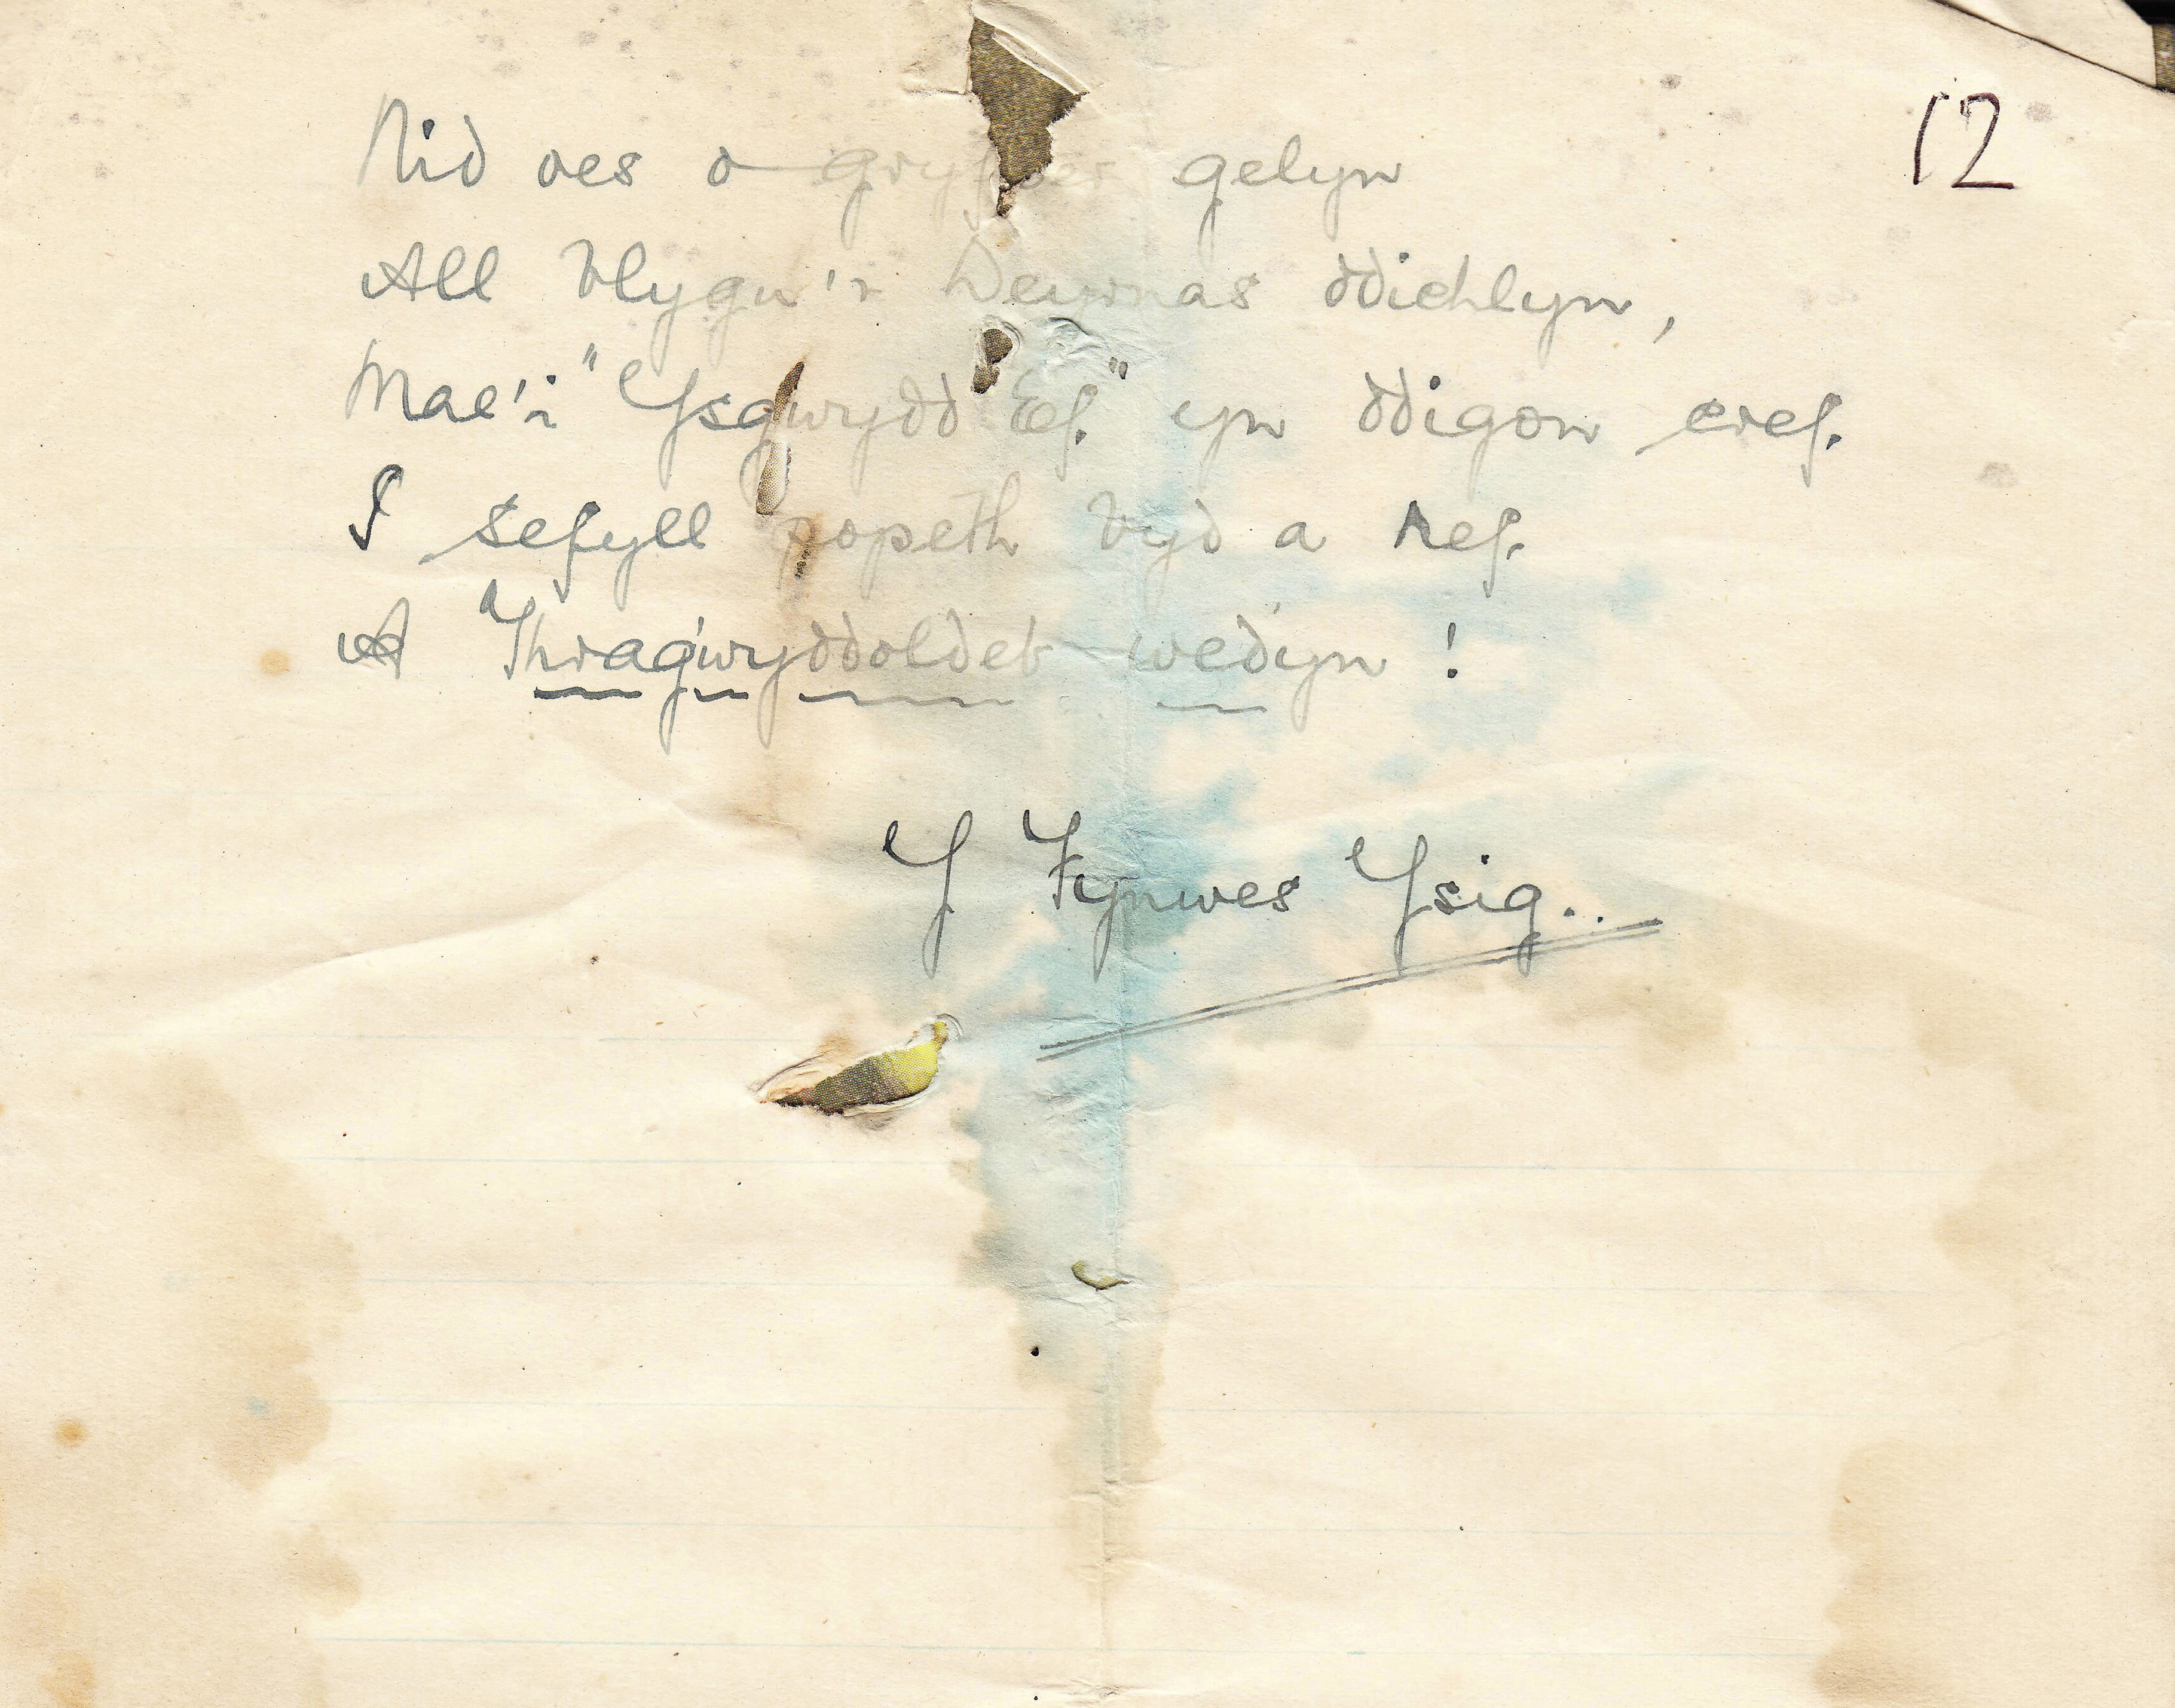 12
Nid oes o gryfder gelyn
All blygu'r Deyrnas ddichlyn,
Mae'i "Ysgwydd Ef." yn ddigon cref.
I sefyll popeth byd a nef.
A Thragwyddoldeb wedyn !
Y Fynwes Ysig..